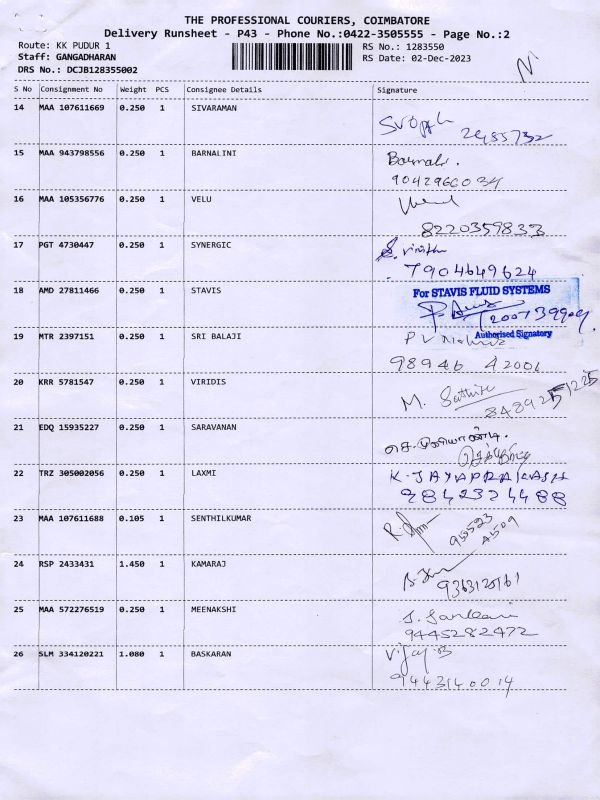 THE PROFESSIONAL COURIERS, COIMBATORE
Delivery Runsheet - P43 - Phone No.:0422-3505555 - Page No.:2
Route: KK PUDUR 1 RS No.: 1283550
Staff: GANGADHARAN RS Date: 02-Dec-2023
DRS No.: DCJB128355002
S No Consignment No Weight PCS Consignee Details Signature
14 MAA 107611669 0.250 1 SIVARAMAN
15 MAA 943798556 0.250 1 BARNALINI
9042960034
16 MAA 105356776 0.250 1 VELU
8220359833
17 PGT 4730447 0.250 1 SYNERGIC
7904649624
18 AMD 27811466 0.250 1 STAVIS For STAVIS FLUID SYSTEMS
Authorised Signatory
19 MTR 2397151 0.250 1 SRI BALAJI
98946 42001
20 KRR 5781547 0.250 1 VIRIDIS M.
21 EDQ 15935227 0.250 1 SARAVANAN
22 TRZ 305002056 0.250 1 LAXMI K-JAYAPRAKASH
23 MAA 107611688 0.105 1 SENTHILKUMAR
24 RSP 2433431 1.450 1 KAMARAJ
25 MAA 572276519 0.250 1 MEENAKSHI
9445282472
26 SLM 334120221 1.080 1 BASKARAN Vijay.B
9443140014